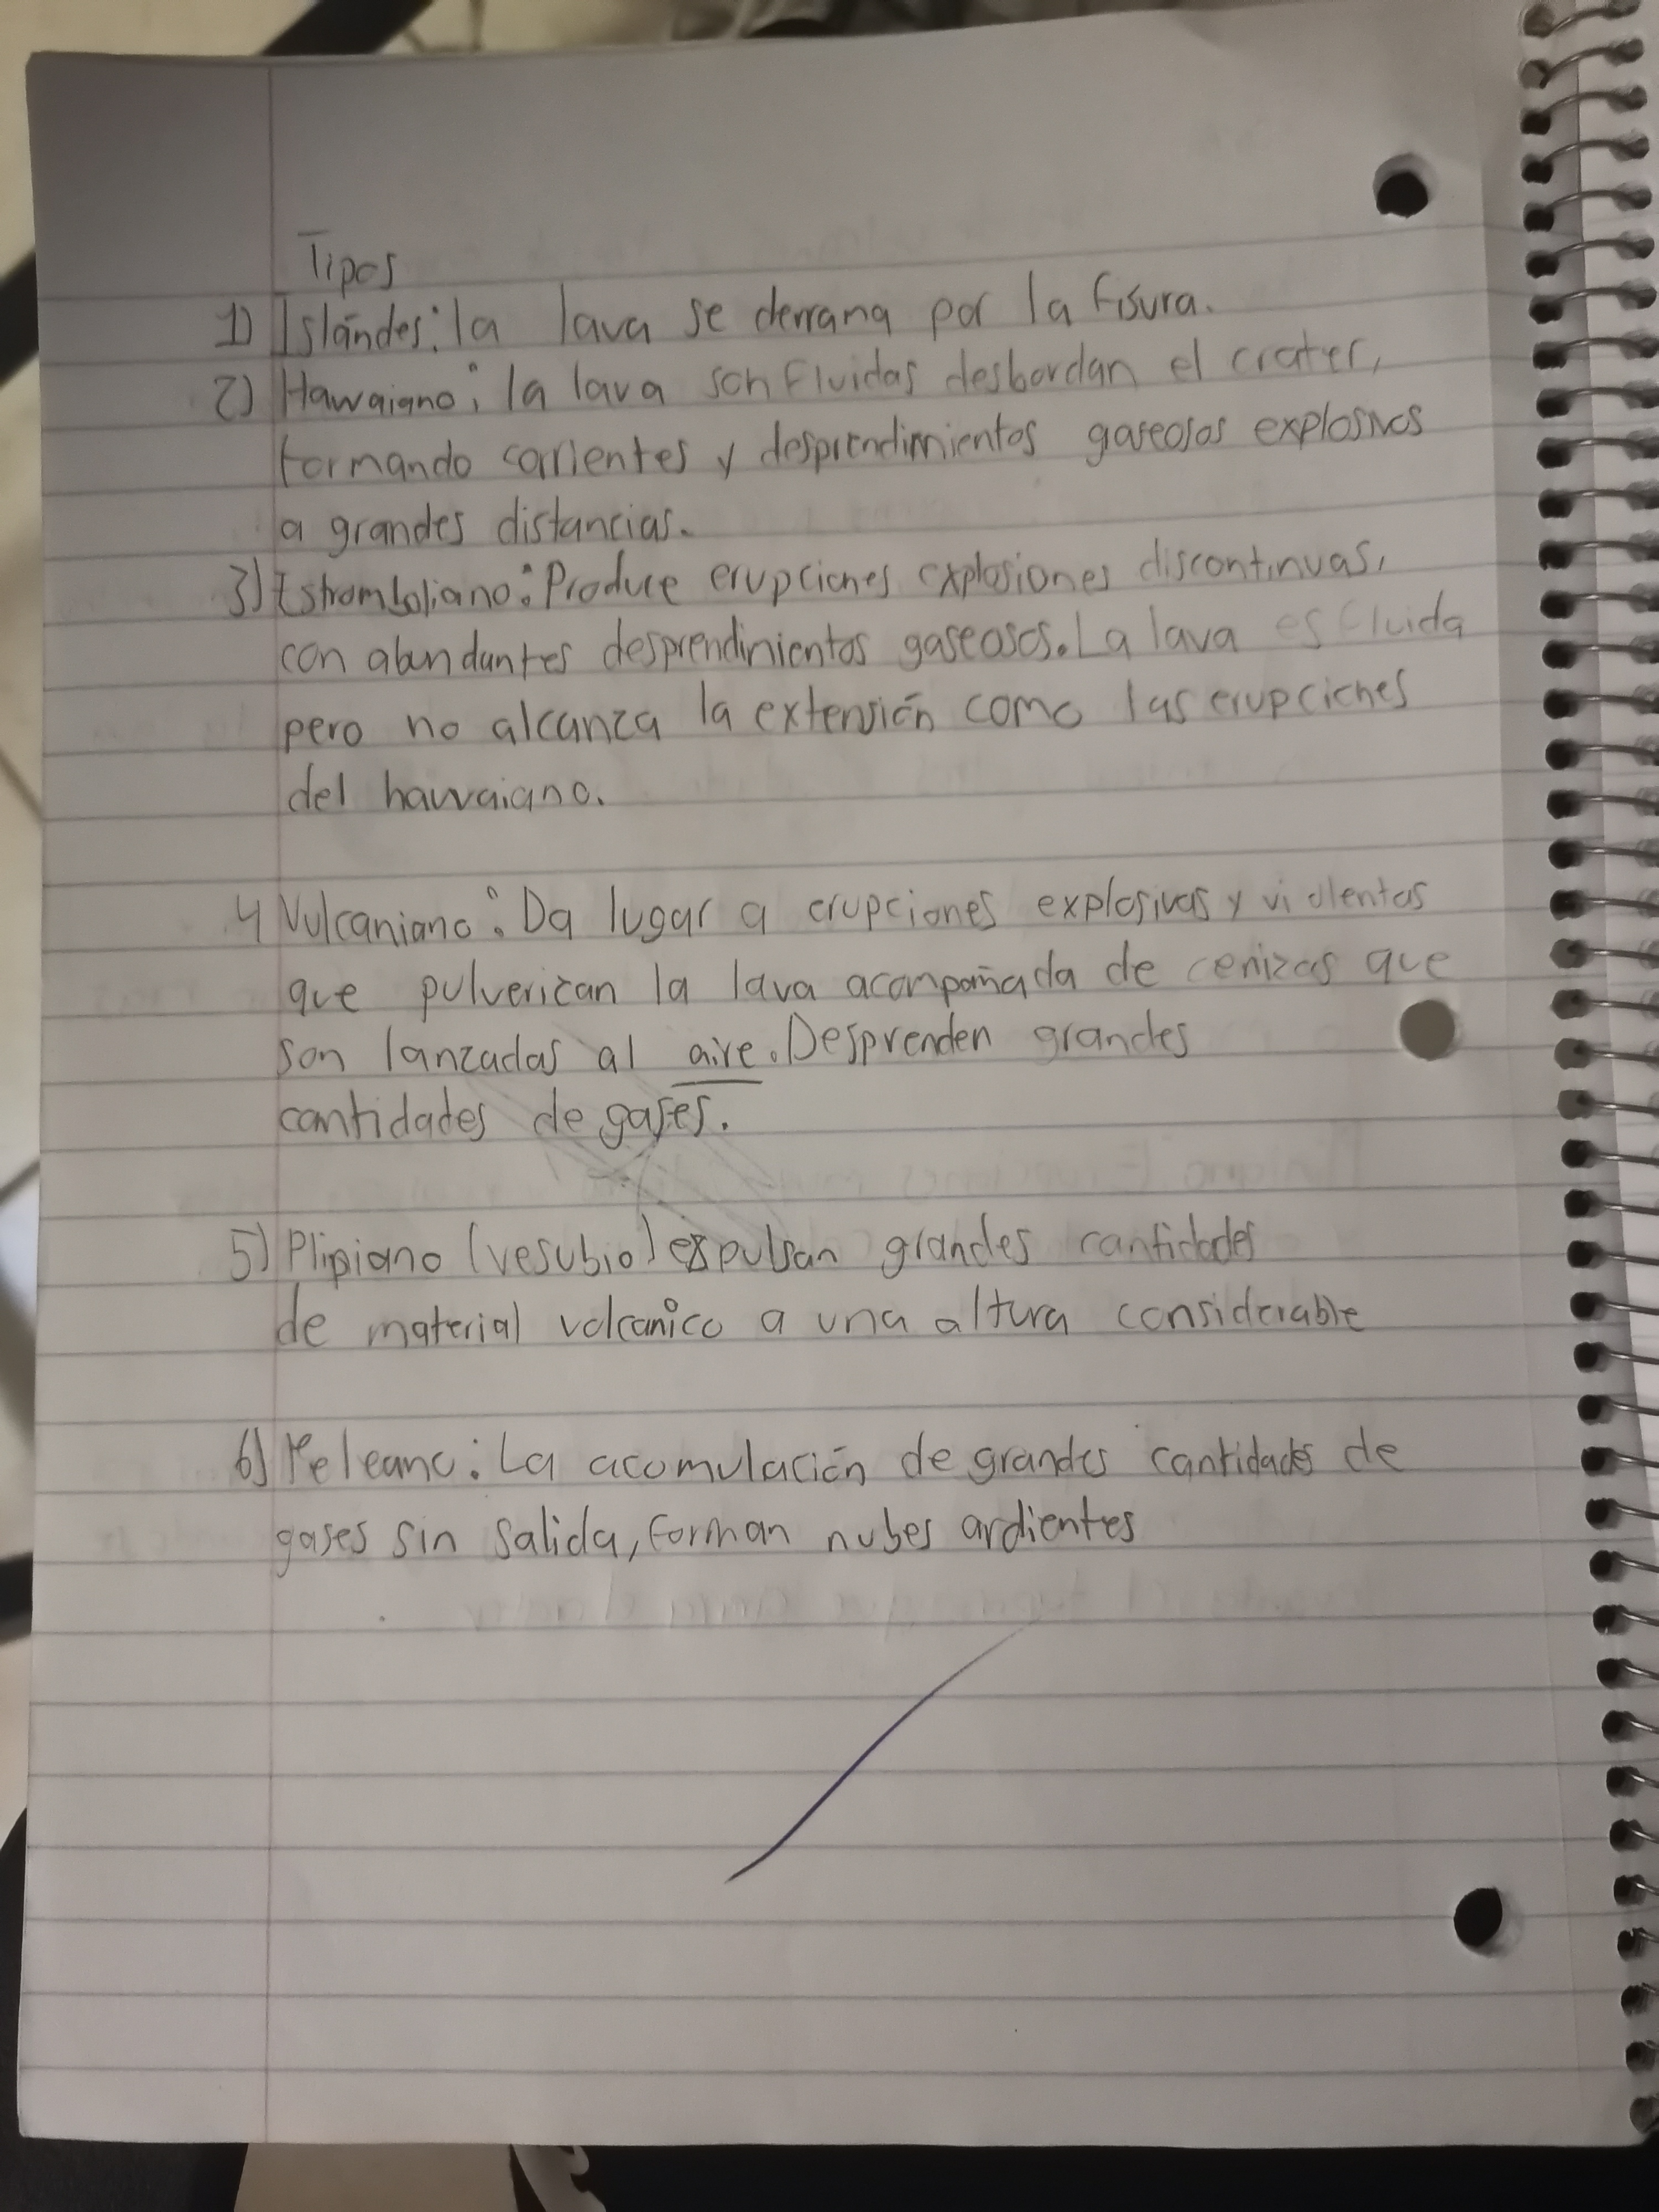 Tipos
1) Islándes: la lava se derrana por la fisura.
2) Hawaiano: la lava son fluidas desbordan el crater,
formando corrientes y desprendimientos gaseosos explosivos
a grandes distancias.
3) Estromboliano: Produce erupciones explosiones discontinuas,
con abundantes desprendinientos gaseosos. La lava es fluida
pero no alcanza la extensión como las erupciones
del hawaiano.
4 Vulcaniano: Da lugar a erupciones explosivas y violentas
que pulverizan la lava acompañada de cenizas que
son lanzadas al aire. Desprenden grandes
cantidades de gases.
5) Plipiano (vesubio) expulsan grandes cantidades
de material volcanico a una altura considerable
6) Peleano: La acomulación de grandes cantidades de
gases sin salida, forman nubes ardientes